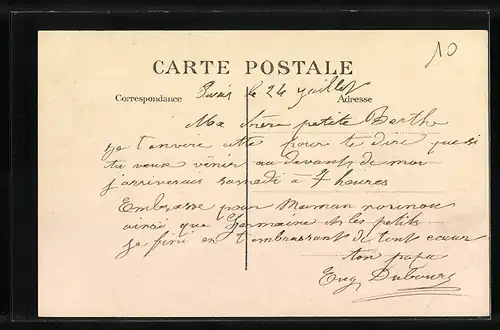 10
CARTE POSTALE
Correspondance
Adresse
Paris le 24 juillet
Ma chère petite Berthe
je t'envoie cette pour te dire que si
tu veux venir au devant de moi
j'arriverais samedi à 7 heures
Embrasse pour Maman
ainsi que Germaine et les petits
je fini en t'embrassant de tout cœur
ton papa
Eug Dubourg